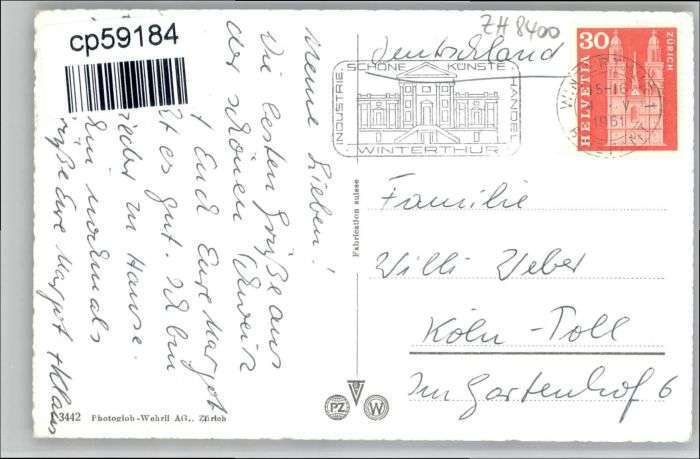 cp59184
ZH 8400
Deutschland
INDUSTRIE
SCHÖNE KÜNSTE
HANDEL
WINTERTHUR
30
ZÜRICH
HELVETIA
1961
Meine Lieben!
Die besten Grüße aus
der schönen Schweiz
Euch Eure Margot
es gut. Ich bin
wieder zu Hause.
nochmals
Grüße Eure Margot + Klaus
Familie
Willi Weber
Köln-Poll
Im Gartenhof 6
Fabrication suisse
3442 Photoglob-Wehrli AG., Zürich
PZ
W